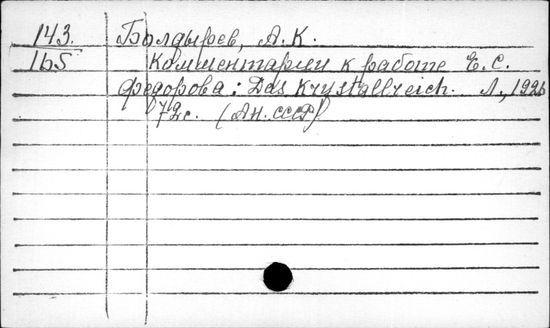 143. Болдырев, А.К.
165 Комментарии к работе Е.С.
Федорова: Das Krystallreich. Л., 1926
72с. (АН. СССР)